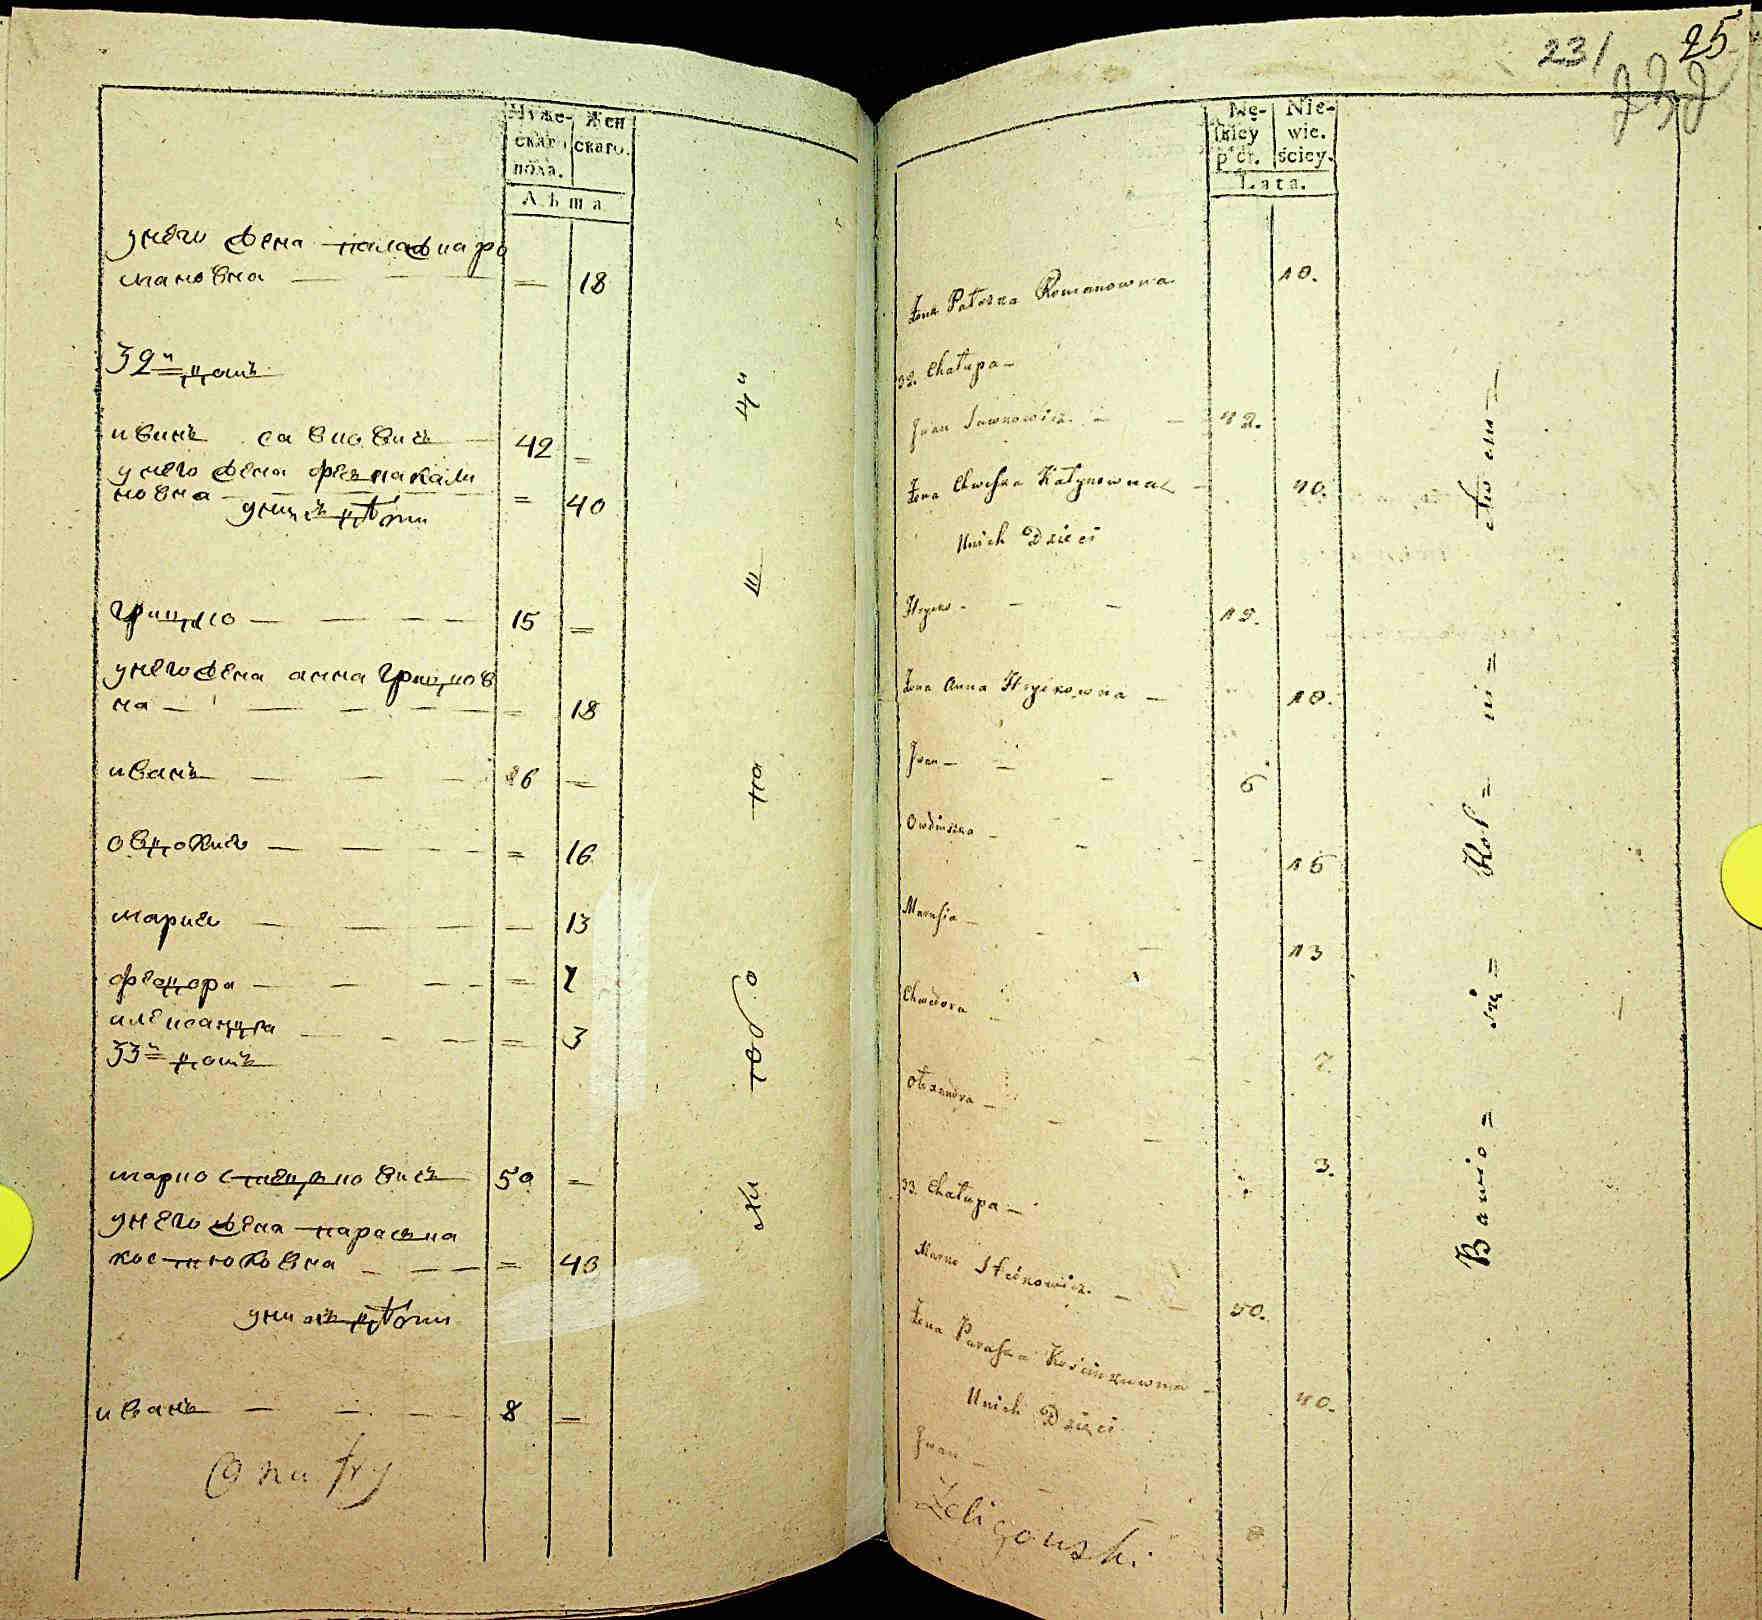 Муже-
скаго
пола.
Жен
скаго.
Лѣта
у него жена палажка ро
мановна — — = 18
32й домъ
иванъ савновичъ — 42 =
у него жена феська кали
новна — = 40
у нихъ дѣти
грицко — — — 15 =
у него жена анна грицков
на — — — — 18
иванъ — — — 6 =
овдокия — — — = 16
мария — — — — 13
федора — — — = 7
александра — — — = 3
33й домъ
марко стецковичъ 50 =
у него жена параска
костюковна — — = 40
у нихъ дѣти
иванъ — — — 8 —
Onufry
231
25
232
Mę-
skiey
płci.
Nie-
wie.
ściey.
Lata.
Żona Pałaszka Romanowna 18.
32. Chałupa —
Jwan Sawnowicz — — 42.
Żona Chweska Kałynowna — 40.
Unich Dzieci
Hryćko — — — 15.
Żona Anna Hryćkowna — 18.
Jwan — — — 6
Owdoszka — — — 16
Marusia — — — 13
Chwedora — — — 7.
Olexandra — — — 3.
33. Chałupa —
Marko Stećkowicz — — 50.
Żona Paraska Kościukowna — 40.
Unich Dzieci
Jwan — 8
Żeligowski